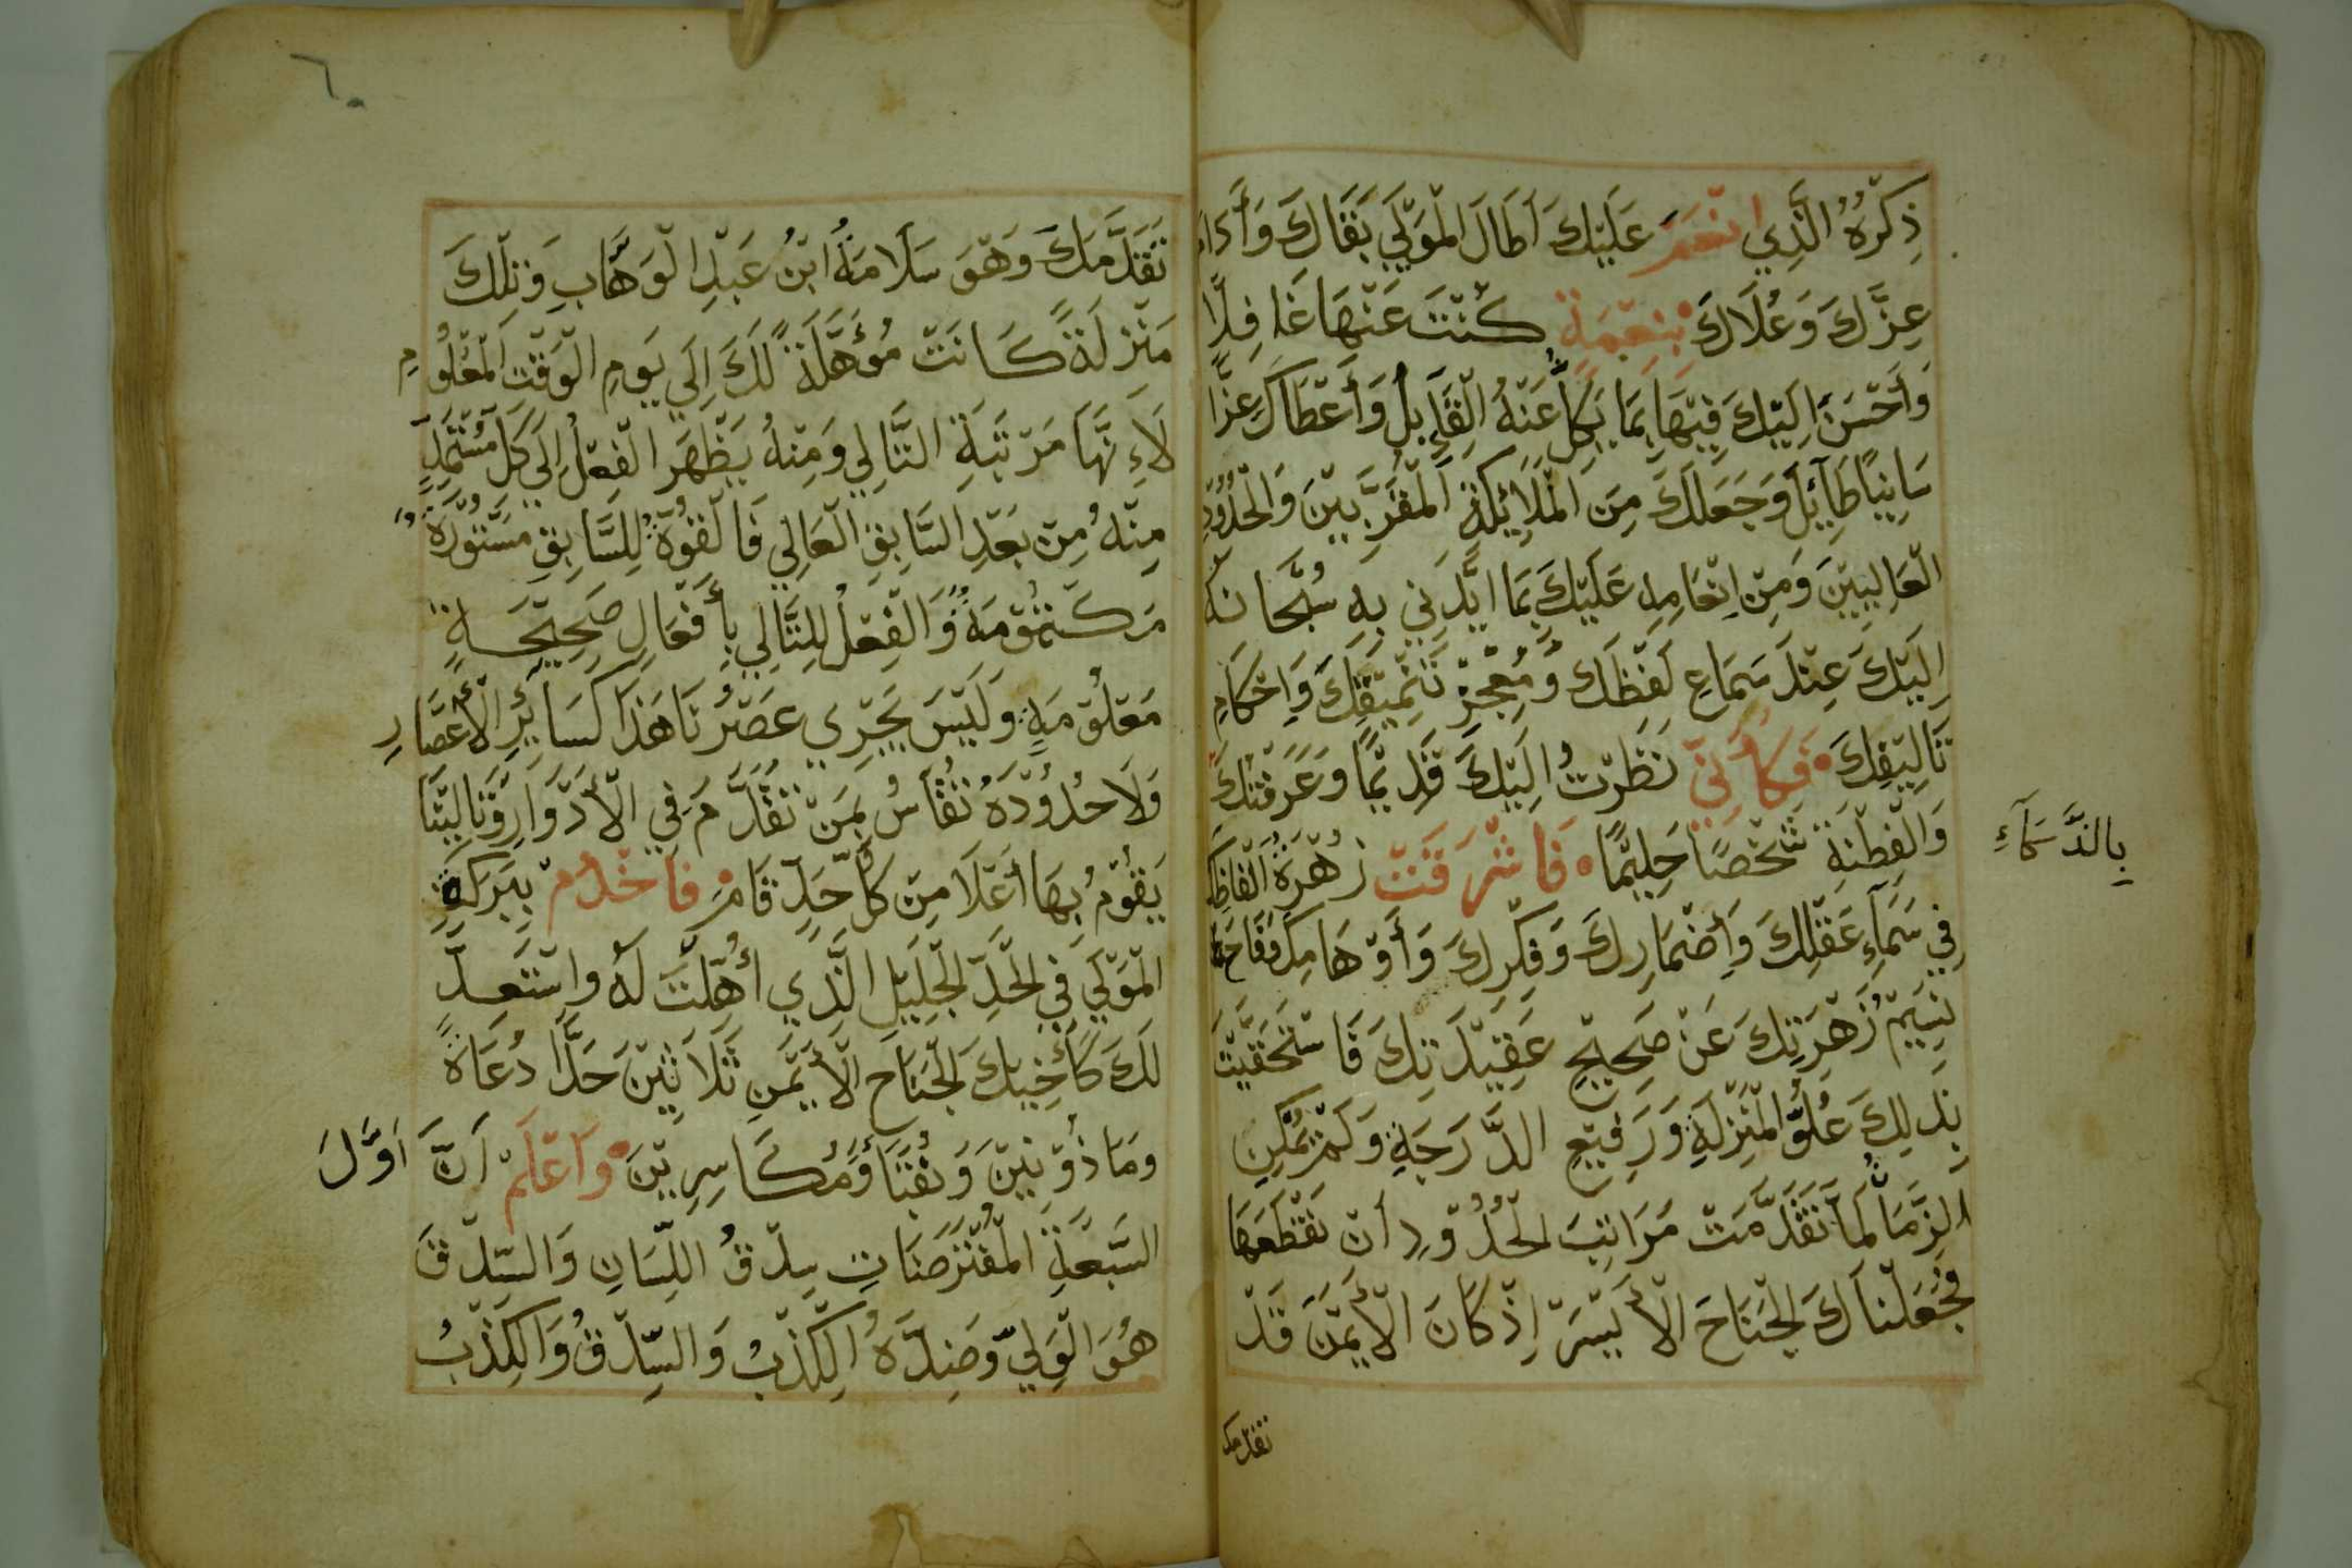 ذِكْرُهُ الَّذِي انْعَمَ عَلَيْكَ اَطَالَ الْمَوْلَي بَقَاكَ وَأَدَامَ
عِزَّكَ وَعُلَاكَ بِنِعْمَةٍ كُنْتَ عَنْهَا غَافِلًا
وَأَحْسَنَ اِلَيْكَ فِيْهَا بِمَا يَكِلُّ عَنْهُ الْقَايِلُ وَأَعْطَاكَ عِزًّا
سَانِيًا طَايِلَ وَجَعَلَكَ مِنَ الْمَلَائِكَةِ الْمُقَرَّبِيْنَ وَالْحُدُوْدِ
الْعَالِيِيْنَ وَمِنْ اِنْعَامِهِ عَلَيْكَ بِمَا ايَّدَنِي بِهِ سُبْحَانَهُ
اِلَيْكَ عِنْدَ سَمَاعِ لَفْظِكَ وَمُعْجِزْ تَنْمِيْقِكَ وَاِحْكَامِ
تَالِيْفِكَ فَكَأَنِّيْ نَظَرْتُ اِلَيْكَ قَدِيْمًا وَعَرَفْتُكَ
بِالذَّكَآءِ
وَالْفِطْنَةِ شَخْصًا حَلِيْمًا فَاشْرَقَتْ زُهْرَةُ اَلْفَاظِكَ
فِي سَمَآءِ عَقْلِكَ وَأِضْمَارِكَ وَفِكْرِكَ وَأَوْهَامِكَ فَفَاحَ
نَسِيْمُ زُهْرَتِكَ عَنْ صَحِيْحِ عَقِيْدَتِكَ فَاسْتَحَقَّيْتَ
بِذَلِكَ عُلُوَّ الْمَنْزِلَةِ وَرَفِيْعِ الدَّرَجَةِ وَلَمْ يُمْكِنِ
الزَّمَانُ لَمَّا تَقَدَّمَتْ مَرَاتِبَ الْحُدُوْدِ أَنْ نَقْطَعَهَا
فَجَعَلْنَاكَ الْجَنَاحَ الْأَيْسَرَ اِذْ كَانَ الْأَيْمَنَ قَدْ
تقدمك
٦٠
تَقَدَّمَكَ وَهْوَ سَلَامَةُ ابْنُ عَبْدِ الْوَهَّابِ وَتِلْكَ
مَنْزِلَةً كَانَتْ مُؤَهَّلَةً لَكَ اِلَي يَومِ الْوَقْتِ الْمَعْلُوْمِ
لَاِنَّهَا مَرْتَبَةِ التَّالِي وَمِنْهُ يَظْهَرَ الْفِعْلُ اِلَي كُلِّ مُسْتَمِدٍّ
مِنْهُ مِنْ بَعْدِ السَّابِقِ الْعَالِي فَالْقُوَّةُ لِلسَّابِقِ مَسْتُوْرَةً
مَكْتُوْمَةً وَالْفِعْلُ لِلتَّالِي بِأَفْعَالٍ صَحِيْحَةٍ
مَعْلُوْمَةٍ وَلَيْسَ يَجْرِي عَصْرُنَا هَذَا كَسَايِرِ الْأَعْصَارِ
وَلَا حُدُوْدَهُ تُقَاسُ بِمَنْ تَقَدَّمَ فِي الْأَدْوَارِ وَتَالِيْنَا
يَقُوْمُ بِهَا أَعْلَا مِنْ كُلِّ حَدٍّ قَامَ فَاخْدُمْ بِبَرَكَةِ
الْمَوْلَي فِي الْحَدِّ الْجَلِيْلِ الَّذِي أُهِّلْتَ لَهُ وَاسْتَعِدَّ
لَكَ كَأَخِيكَ الْجَنَاحِ الْأَيْمَنِ ثَلَاثِيْنَ حَدًّا دُعَاةً
وَمَاذُوْنِيْنَ وَنُقَبَا وَمُكَاسِرِيْنَ وَاَعْلَمْ اَنَّ اَوَّلَ
السَّبْعَةِ الْمُفْتَرَضَاتِ سِدْقُ اللِّسَانِ وَالسِّدْقَ
هُوَ الْوَلِيّ وَضِدَّهُ الْكِذْبُ وَالسِّدْقُ وَالْكِذْبُ